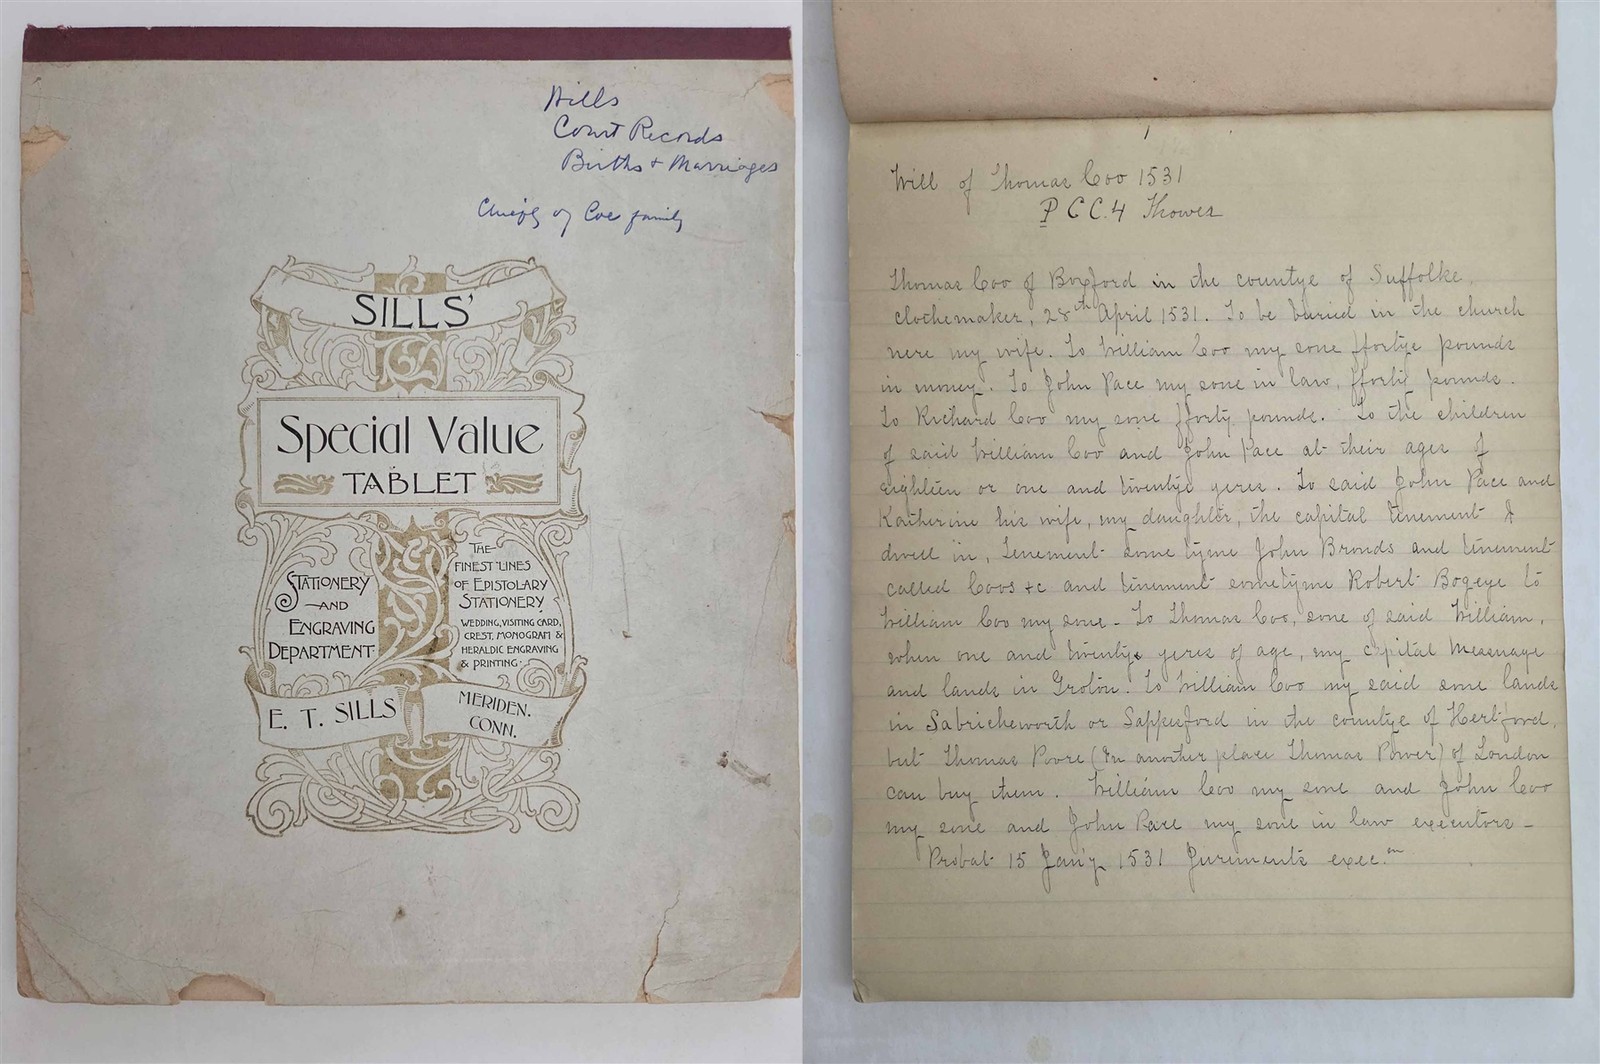 Wills
Court Records
Births + Marriages
Chiefly of Coe family
SILLS'
Special Value
TABLET
STATIONERY
—AND
ENGRAVING
DEPARTMENT
THE
FINEST LINES
OF EPISTOLARY
STATIONERY
WEDDING, VISITING CARD,
CREST, MONOGRAM &
HERALDIC ENGRAVING
& PRINTING.
E. T. SILLS
MERIDEN.
CONN.
1
Will of Thomas Coo 1531
P C C. 4 Thower
Thomas Coo of Boxford in the countye of Suffolke,
clothemaker, 28th April 1531. To be buried in the church
nere my wife. To William Coo my sone ffortye pounds
in money. To John Pace my sone in law, fforty pounds.
To Richard Coo my sone fforty pounds. To the children
of said William Coo and John Pace at their ages of
eighteen or one and twentye yeres. To said John Pace and
Katherine his wife, my daughter, the capital tenement I
dwell in, tenement some tyme John Bronds and tenement
called Coos +c and tenement sometyme Robert Bogeye to
William Coo my sone - To Thomas Coo, sone of said William,
when one and twentye yeres of age, my capital messuage
and lands in Groton. To William Coo my said sone lands
in Sabricheworth or Sappesford in the countye of Hertford,
but Thomas Poore (In another place Thomas Power) of London
can buy them. William Coo my sone and John Coo
my sone and John Pace my sone in law executors -
Probat 15 Jan'y 1531 Juriments exec.